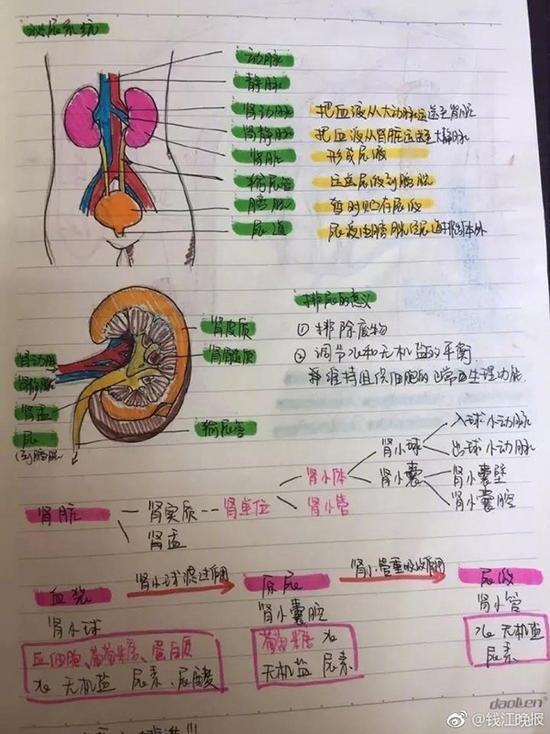 泌尿系统
动脉
静脉
肾动脉 把血液从大动脉运送至肾脏
肾静脉 把血液从肾脏运送至大静脉
肾脏 形成尿液
输尿管 运送尿液到膀胱
膀胱 暂时贮存尿液
尿道 尿液由膀胱经尿道排出体外
肾皮质
肾髓质
肾动脉
肾静脉
肾盂
尿
(到膀胱)
输尿管
排尿的意义
① 排除废物
② 调节水和无机盐的平衡
维持组织细胞的正常生理功能
肾脏
肾实质
肾盂
肾单位
肾小体
肾小管
肾小球
肾小囊
入球小动脉
出球小动脉
肾小囊壁
肾小囊腔
血浆 肾小球滤过作用 原尿 肾小管重吸收作用 尿液
肾小球 肾小囊腔 肾小管
血细胞、葡萄糖、蛋白质
水 无机盐 尿素、尿酸
葡萄糖 水
无机盐 尿素
水 无机盐
尿素
daolien
@钱江晚报